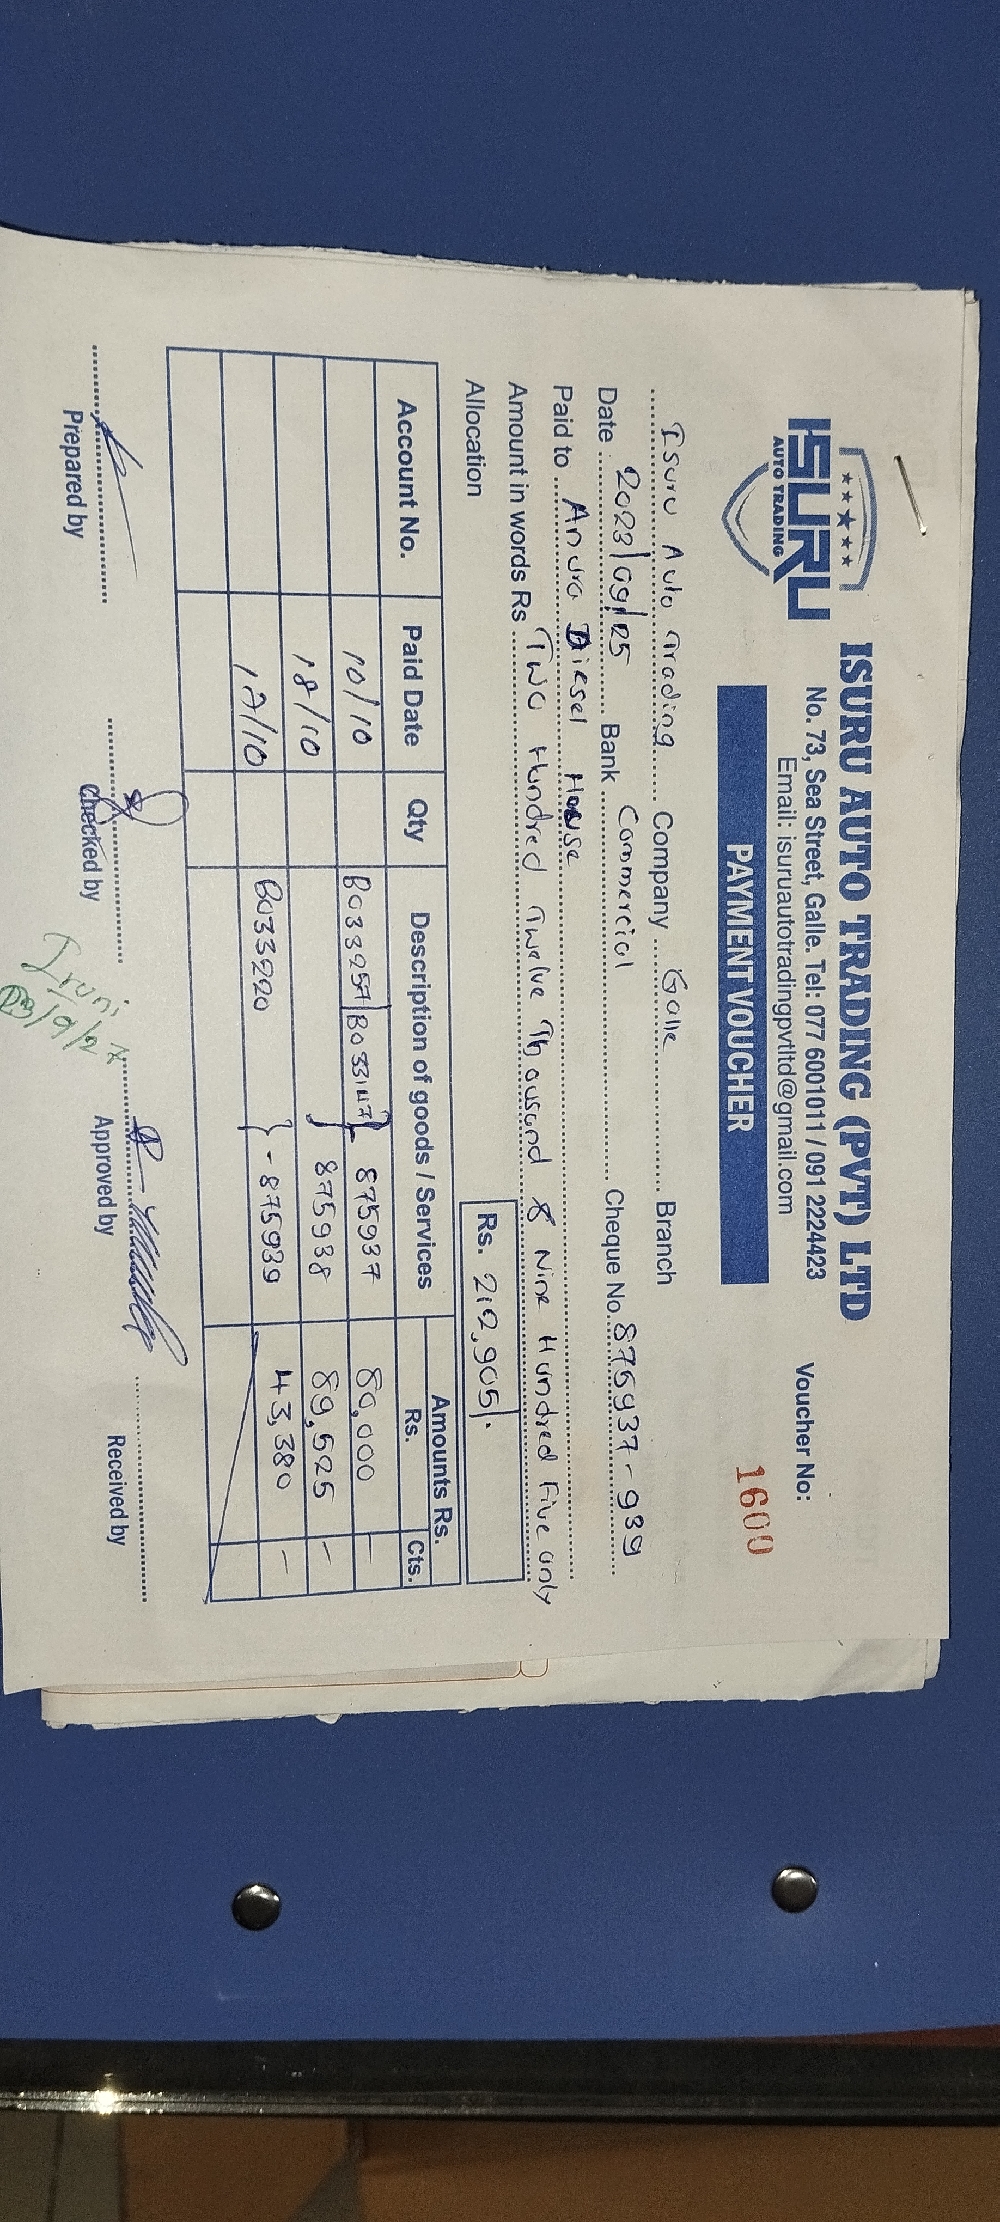 ISURU
AUTO TRADING
ISURU AUTO TRADING (PVT) LTD
No. 73, Sea Street, Galle. Tel: 077 6001011 / 091 2224423
Email: isuruautotradingpvtltd@gmail.com
PAYMENT VOUCHER
Voucher No:
1600
Isuru Auto Trading Company Galle Branch
Date 2023/09/25 Bank Commercial Cheque No. 875937-939
Paid to Anura Diesel House
Amount in words Rs Two Hundred Twelve Thousand & Nine Hundred Five only
Allocation Rs. 212,905/.
Account No. Paid Date Qty Description of goods / Services Amounts Rs.
Rs. Cts.
10/10 B033257/B033147} 875937 80,000 –
18/10 } 875938 89,525 –
17/10 B033220 } - 875939 43,380 –
Prepared by Checked by Approved by Received by
Iruni
23/9/27